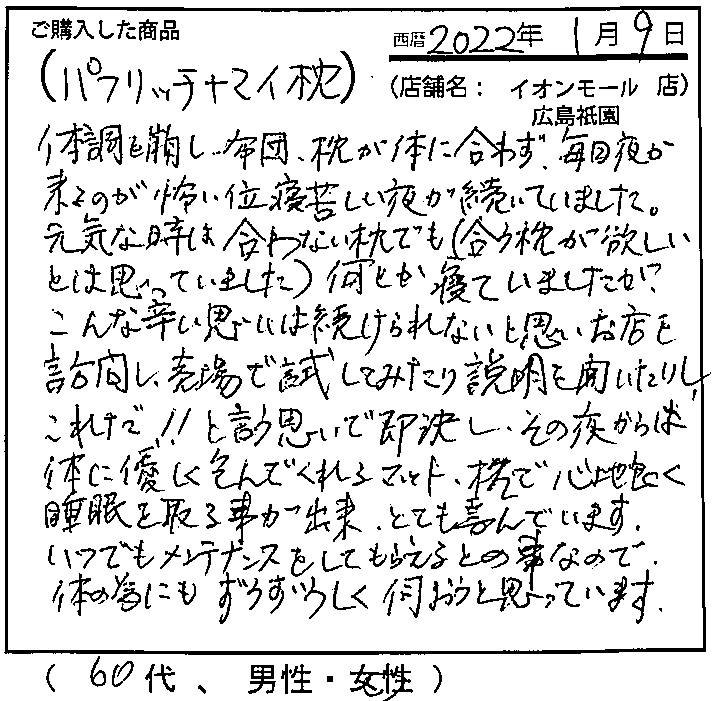 ご購入した商品
西暦 2022年 1月9日
(パフリッチヤマイ枕)
(店舗名: イオンモール 店)
広島祇園
体調を崩し、布団、枕が体に合わず、毎日夜が
来るのが怖い位寝苦しい夜が続いていました。
元気な時は合わない枕でも(合う枕が欲しい
とは思っていました)何とか寝ていましたが、
こんな辛い思いは続けられないと思いお店を
訪問し、売場で試してみたり説明を聞いたりし、
これだ!!と言う思いで即決し、その夜からは
体に優しく包んでくれるマット、枕で心地良く
睡眠を取る事が出来、とても喜んでいます。
いつでもメンテナンスをしてもらえるとの事なので、
体の為にもずうずうしく伺おうと思っています。
(60代、男性・女性)